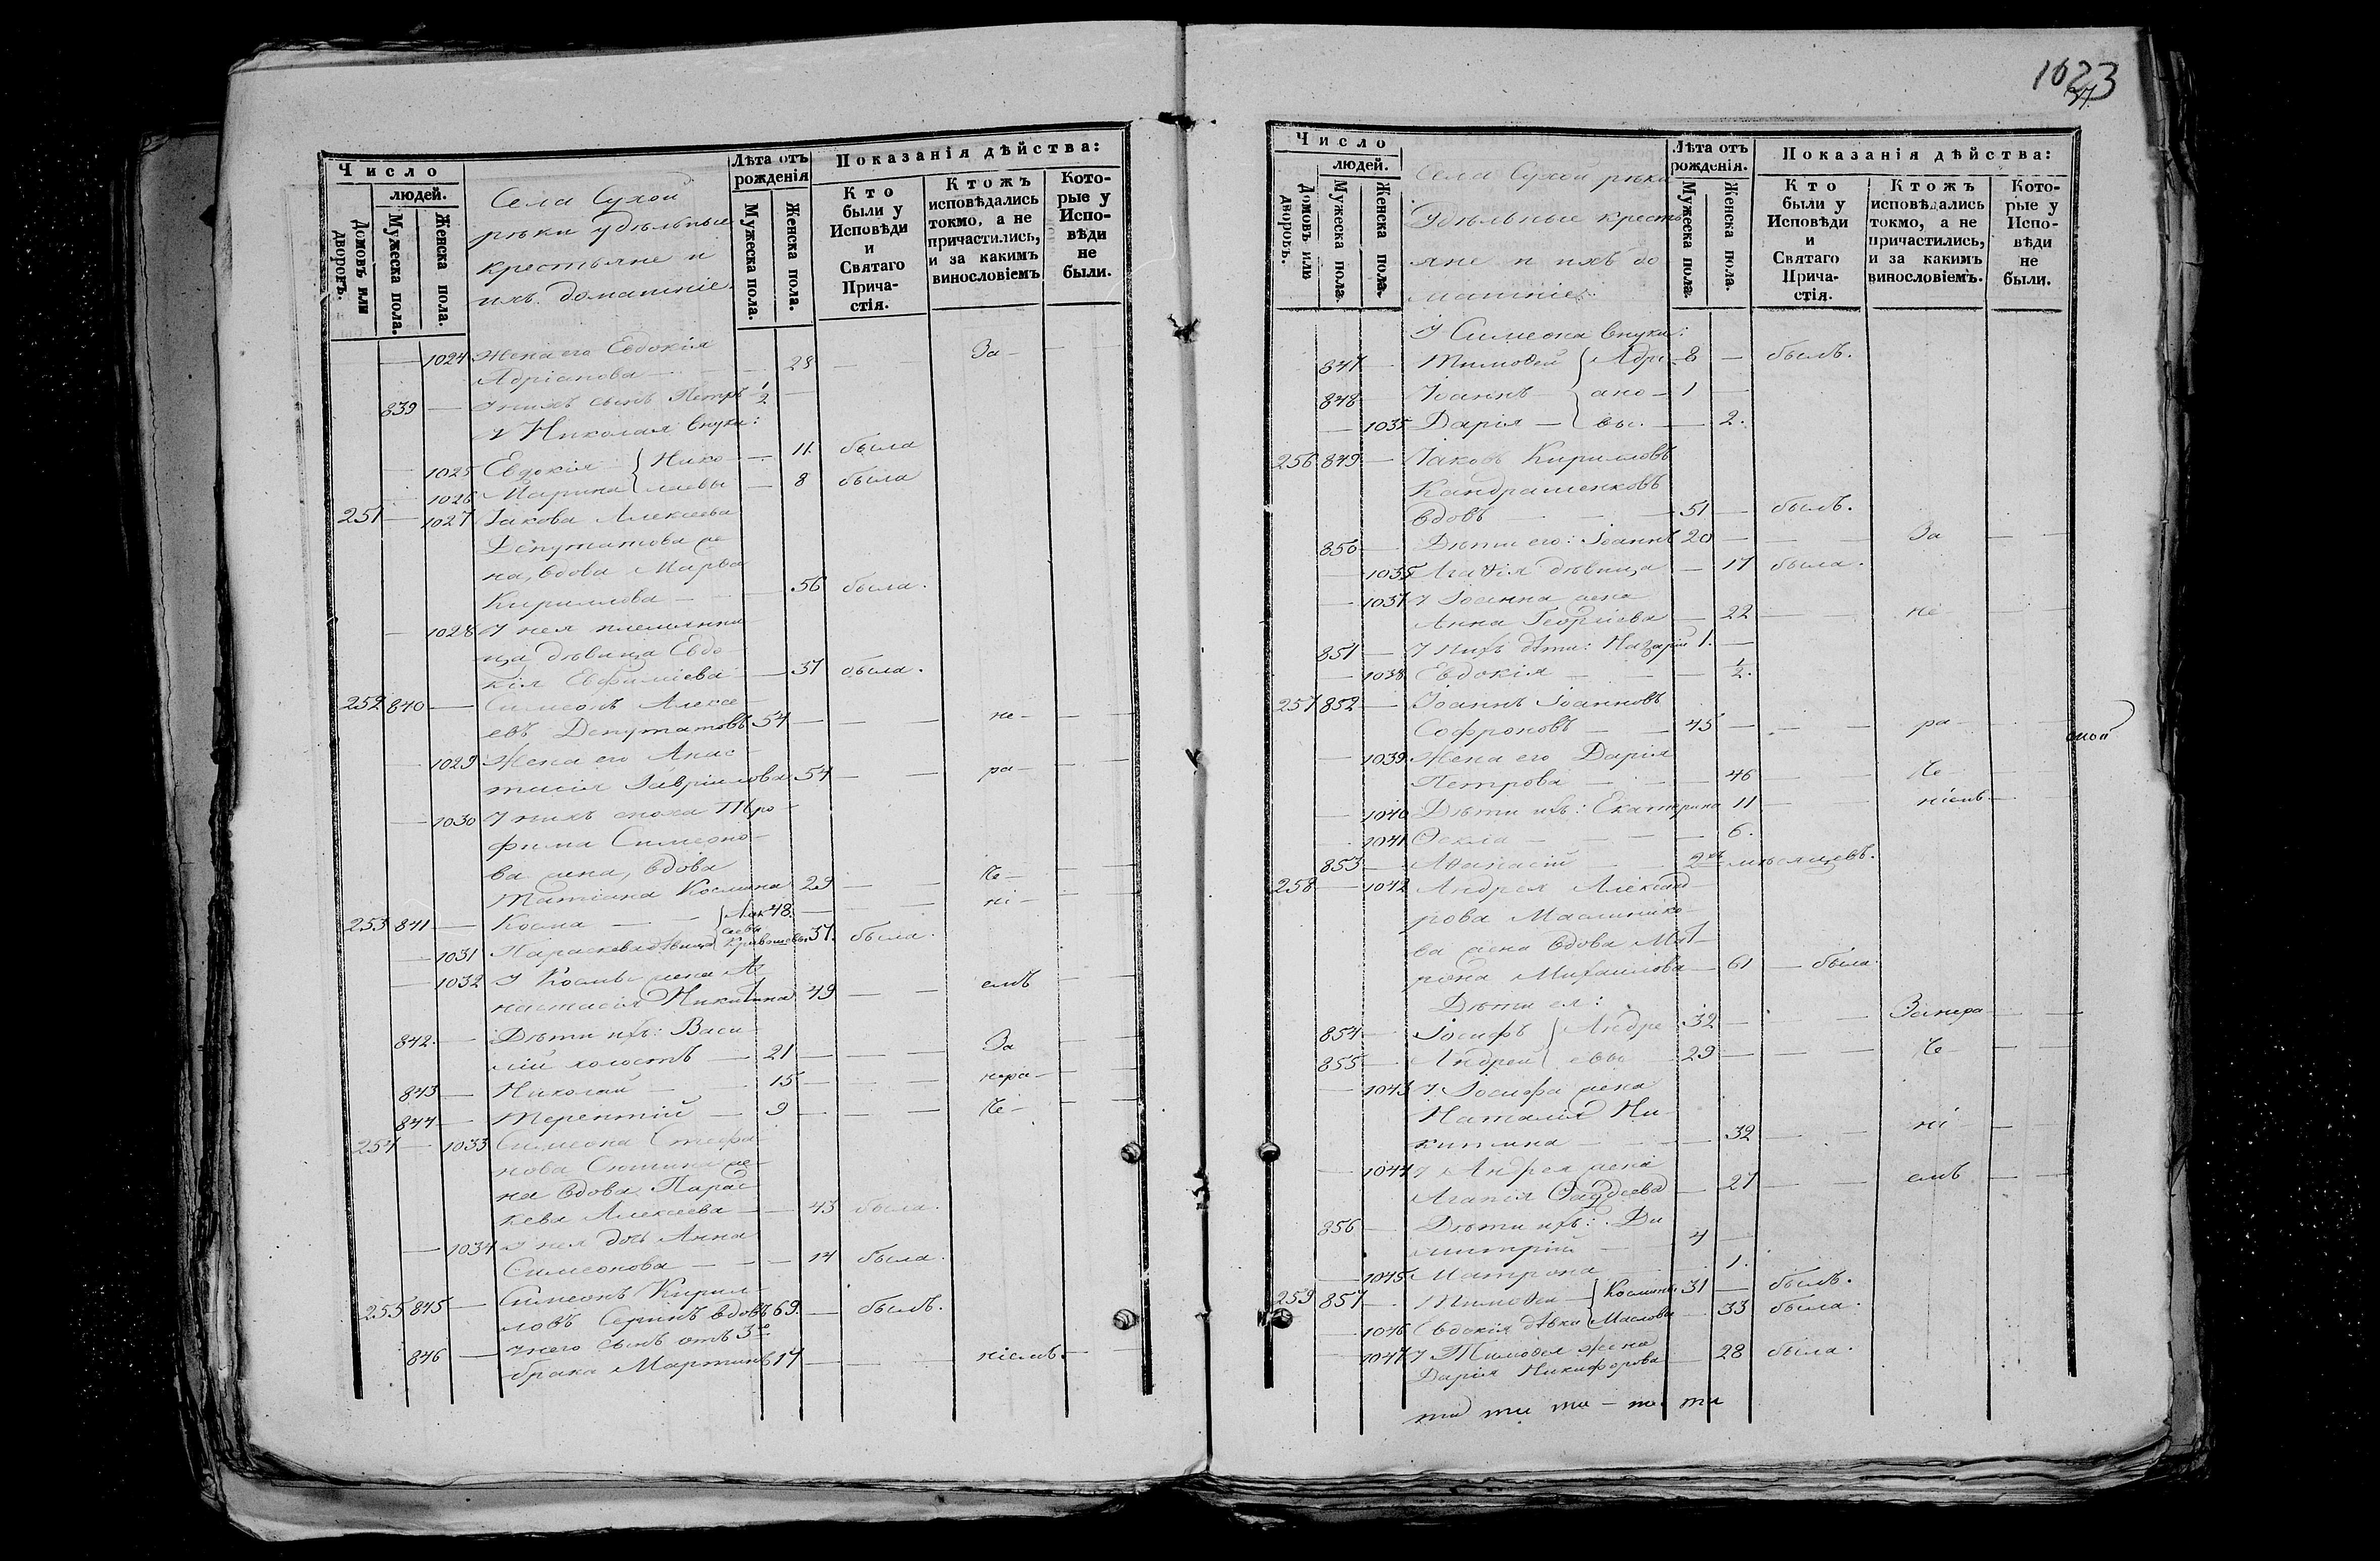 Число
людей.
Домовъ или дворовъ.
Мужеска пола.
Женска пола.
Села Сухой
рѣки удѣльные
крестьяне и
ихъ домашніе.
Лѣта отъ рожденія
Мужеска пола.
Женска пола.
Показанія дѣйства:
Кто были у Исповѣди и Святаго Прича-стія.
Ктожъ исповѣдались токмо, а не причастились, и за какимъ винословіемъ
Кото-рые у Испо-вѣди не были.
1024 Жена его Евдокія За-
Адріанова — 28 —
839 — У нихъ сынъ Петръ 1/2 —
У Николая внуки:
1025 Евдокія { Нико — 11. была
1026 Марина { лаевы — 8 была
251 — 1027 Іакова Алексеева
Депутатова же
на, вдова Марѳа
Кириллова — 56 была.
1028 У нея племянни
ца дѣвица Евдо
кія Евфиміева — 37 была.
252 840 — Симеонъ Алексе
евъ Депутатовъ 54 — — не-
1029 Жена его Анас
тасія Гавріилова 54 — — ра-
1030 У нихъ сноха Тро
фима Симеоно-
ва жена, вдова
Татіана Космина 29 — — че-
253 841 — Косма — 48. — — ні-
1031 Параскева дѣвица Кривошеевы 37. была.
1032 У Космы жена А
настасія Никитина 49 — — емъ
842. — Дѣти ихъ: Васи
лій холостъ — 21 — — За
843 — Николай — 15 — — нера-
844 — Терентій — 9 — — че-
254 — 1033 Симеона Стефа
нова Сютина же-
на вдова Парас
кева Алексеева — 43 была.
1034 У нея дочь Анна
Симеонова — — 14 была.
255 845 — Симеонъ Кирил
ловъ Сергинъ вдовъ 69. — былъ.
846 — У него сынъ отъ 3го
брака Мартинъ 17 — — ніемъ.
1023
37
Число
людей.
Домовъ или дворовъ.
Мужеска пола.
Женска пола.
Села Сухой рѣки
Удѣльные кресть
яне и ихъ до
машніе.
Лѣта отъ рожденія.
Мужеска пола.
Женска пола.
Показанія дѣйства:
Кто были у Исповѣди и Святаго Прича-стія.
Ктожъ исповѣдались токмо, а не причастились, и за какимъ винословіемъ.
Кото-рые у Испо-вѣди не были.
У Симеона внуки:
847 — Тимоѳей { Адрі- 8 — былъ.
848 — Іоаннъ { ано- 1 —
1035 Дарія — { вы. — 2.
256 849 — Іаковъ Кирилловъ
Кандрашенковъ
вдовъ — 51 — былъ.
850 — Дѣти его: Іоаннъ 20 — — За
1035 Агаѳія дѣвица — 17 была.
1037 У Іоанна жена
Анна Георгіева — 22 — — не-
851 — У нихъ дѣти: Назарій 1. —
1038 Евдокія — — 1/2.
257 852 — Іоаннъ Іоанновъ
Софроновъ — 45 — — ра-
1039 Жена его Дарія
Петрова — 46 — че-
1040 Дѣти ихъ: Екатерина 11 — ніемъ-
1041 Ѳекла — — 6.
853 — Аѳанасій — 2хъ мѣсяцевъ.
258 — 1042 Андрея Александ
рова Маслинико-
ва жена вдова Мат-
рона Михаилова — 61 — была.
Дѣти ея:
854 — Іосифъ { Андре 32 — — Занера-
855 — Андрей { евы 29 — — че-
1043 У Іосифа жена
Наталія Ни-
китина — 32 — — ні
1044 У Андрея жена
Агапія Ѳаддеева — 27 — — емъ
856 — Дѣти ихъ: Ди
митрій — 4 —
1045 Матрона — 1.
259 857 — Тимоѳей — { Космины 31 — былъ.
1046 Евдокія дѣвка { Масловы — 33 была.
1047 У Тимоѳея жена
Дарія Никифорова — 28 была.